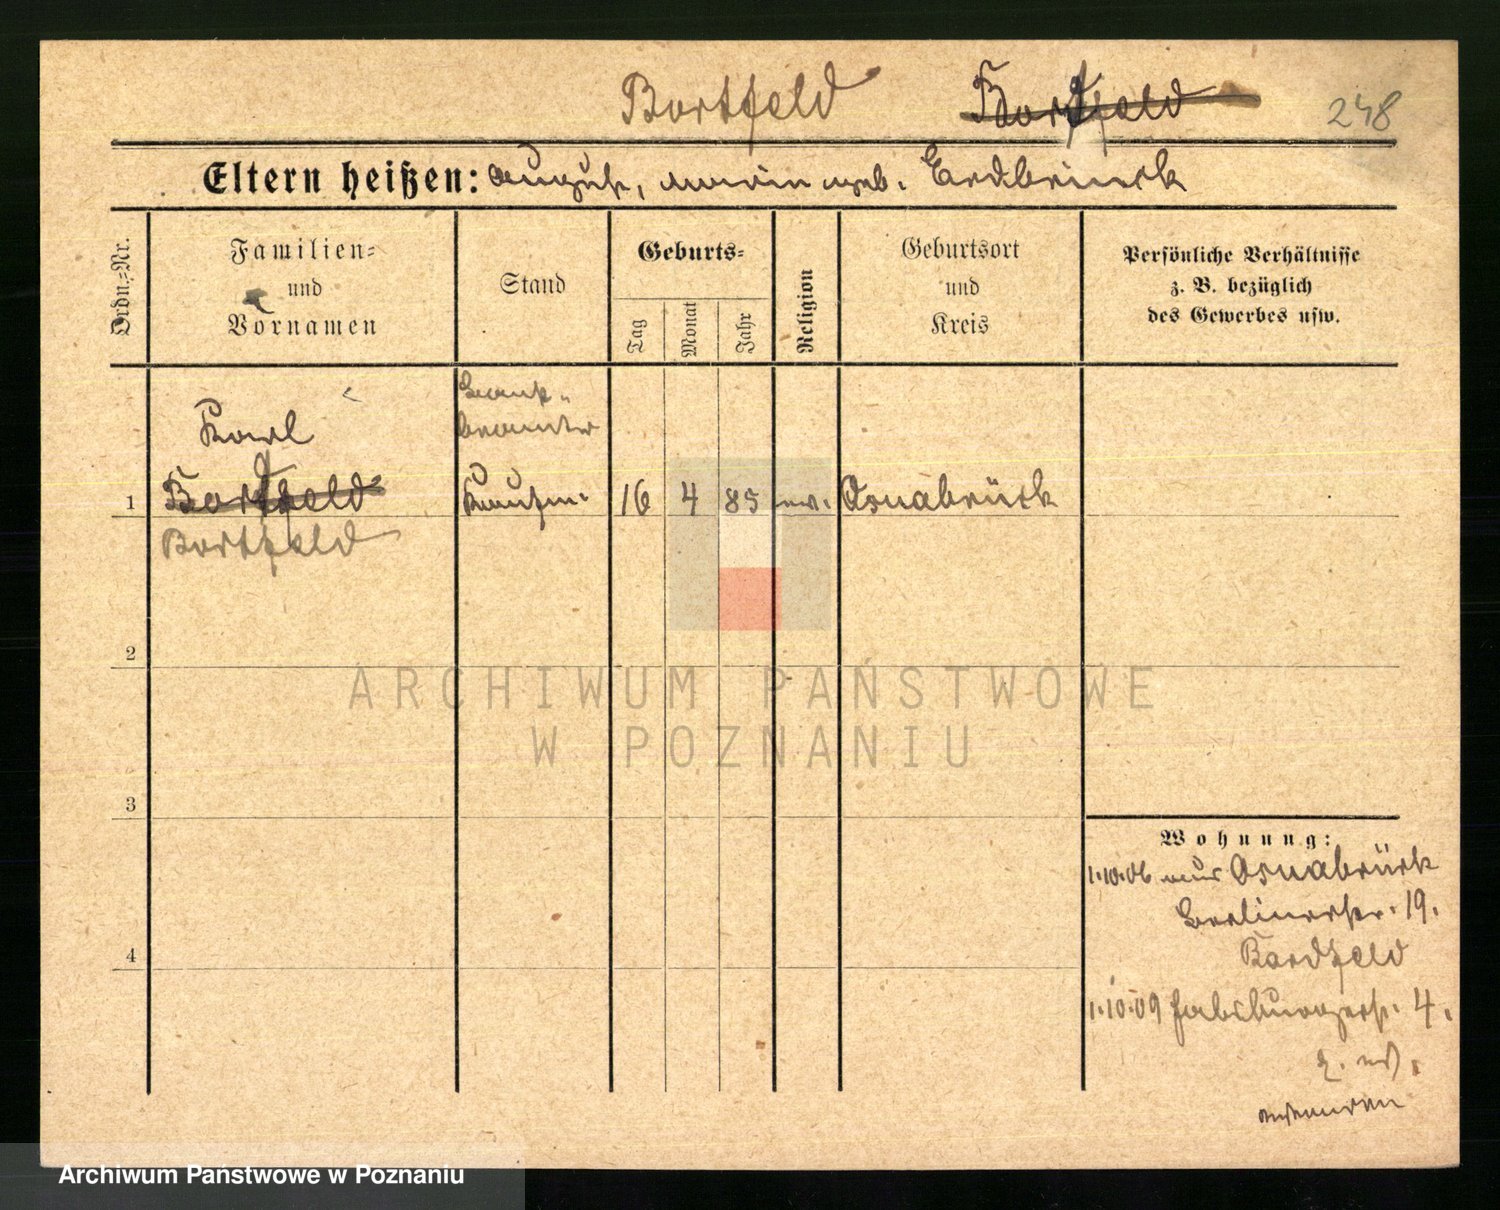 Bortfeld Bortfeld 248
Eltern heißen: August, Marie geb. Erdbrinck
Ordn.-Nr.
Familien-
und
Vornamen
Stand
Geburts-
Tag
Monat
Jahr
Religion
Geburtsort
und
Kreis
Persönliche Verhältnisse
z. B. bezüglich
des Gewerbes usw.
Bank-
beamter
Karl
1 Bortfeld Kaufm. 16 4 85 ev. Osnabrück
Bortfeld
2
ARCHIWUM PAŃSTWOWE
W POZNANIU
3
Wohnung:
1.10.06 aus Osnabrück
Berlinerstr. 19.
Bardfeld
4
1.10.09 Habsburgerstr. 4.
Archiwum Państwowe w Poznaniu